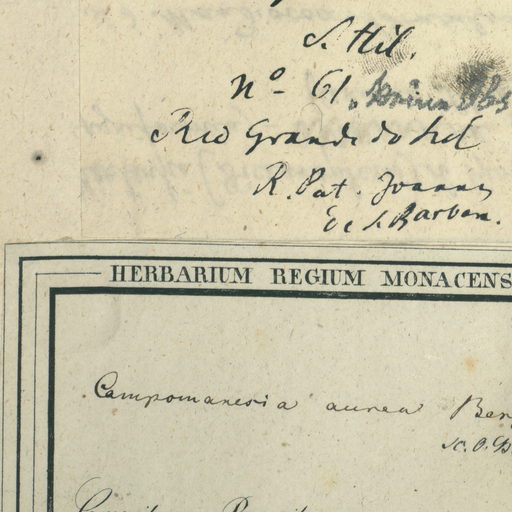 S. Hil.
No- 61.
Rio Grande do Sul
R. Pat. Joannes
de S. Barbara.
HERBARIUM REGIUM MONACENS
Campomanesia aurea Berg